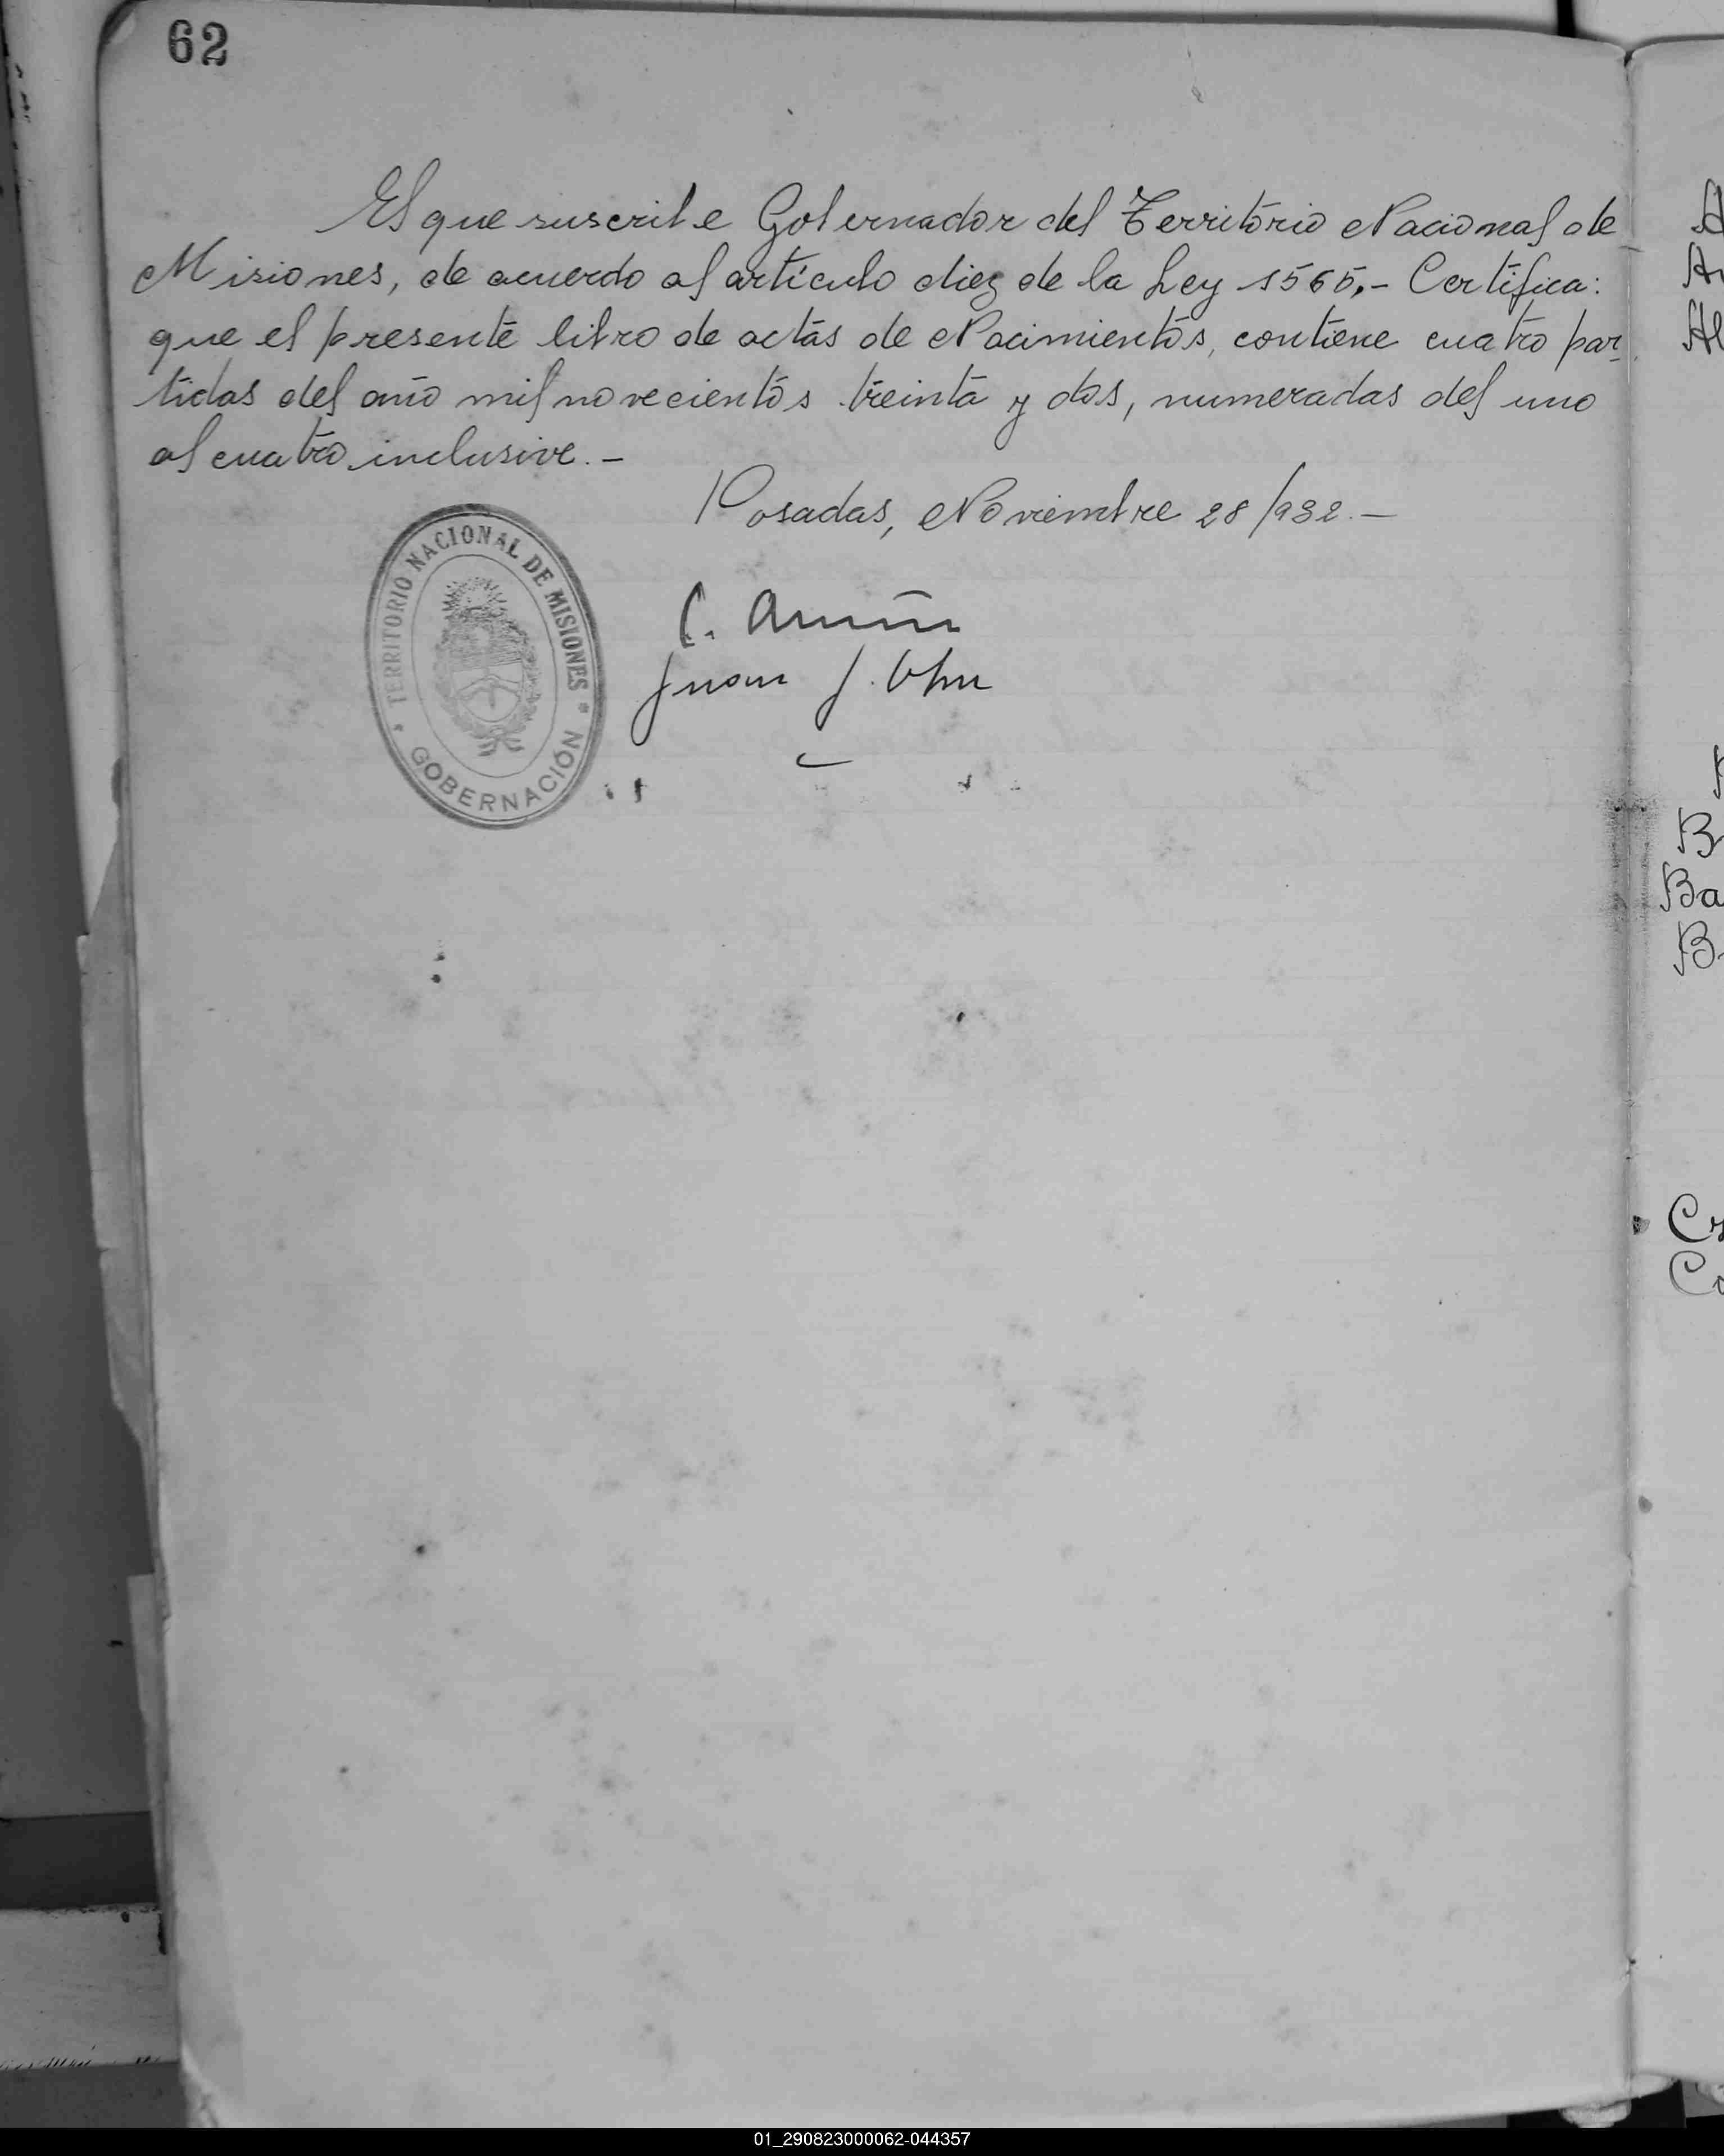 62
El que suscribe Gobernador del Território Nacional de
Misiones, de acuerdo al artículo diez de la Ley 1565,- Certifica:
que el presente libro de actas de Nacimientos, contiene cuatro par-
tidas del año mil novecientos treinta y dos, numeradas del uno
al cuatro inclusive.-
Posadas, Noviembre 28/932.-
TERRITORIO NACIONAL DE MISIONES
GOBERNACIÓN
C.
Juan J.
B
Ba
B
Co
01_290823000062-044357